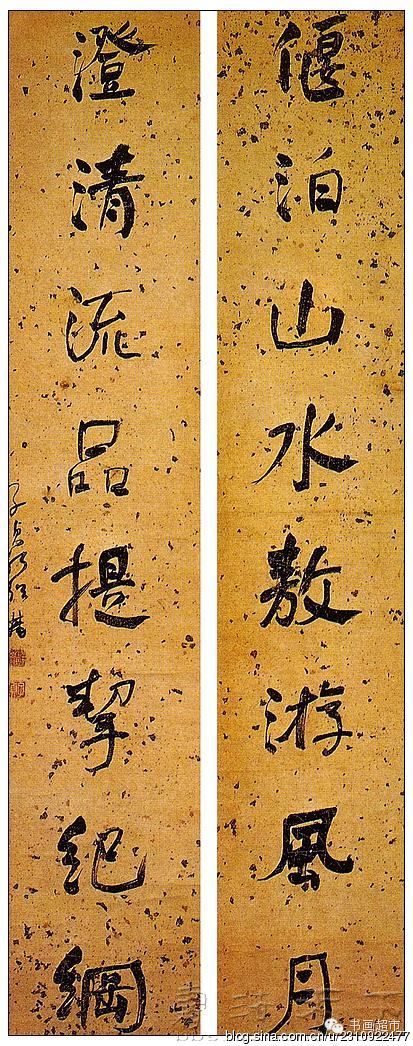 偃泊山水敖游风月
澄清流品提挈纪纲
子贞何绍基
书画超市
blog.sina.com.cn/u/2310922477